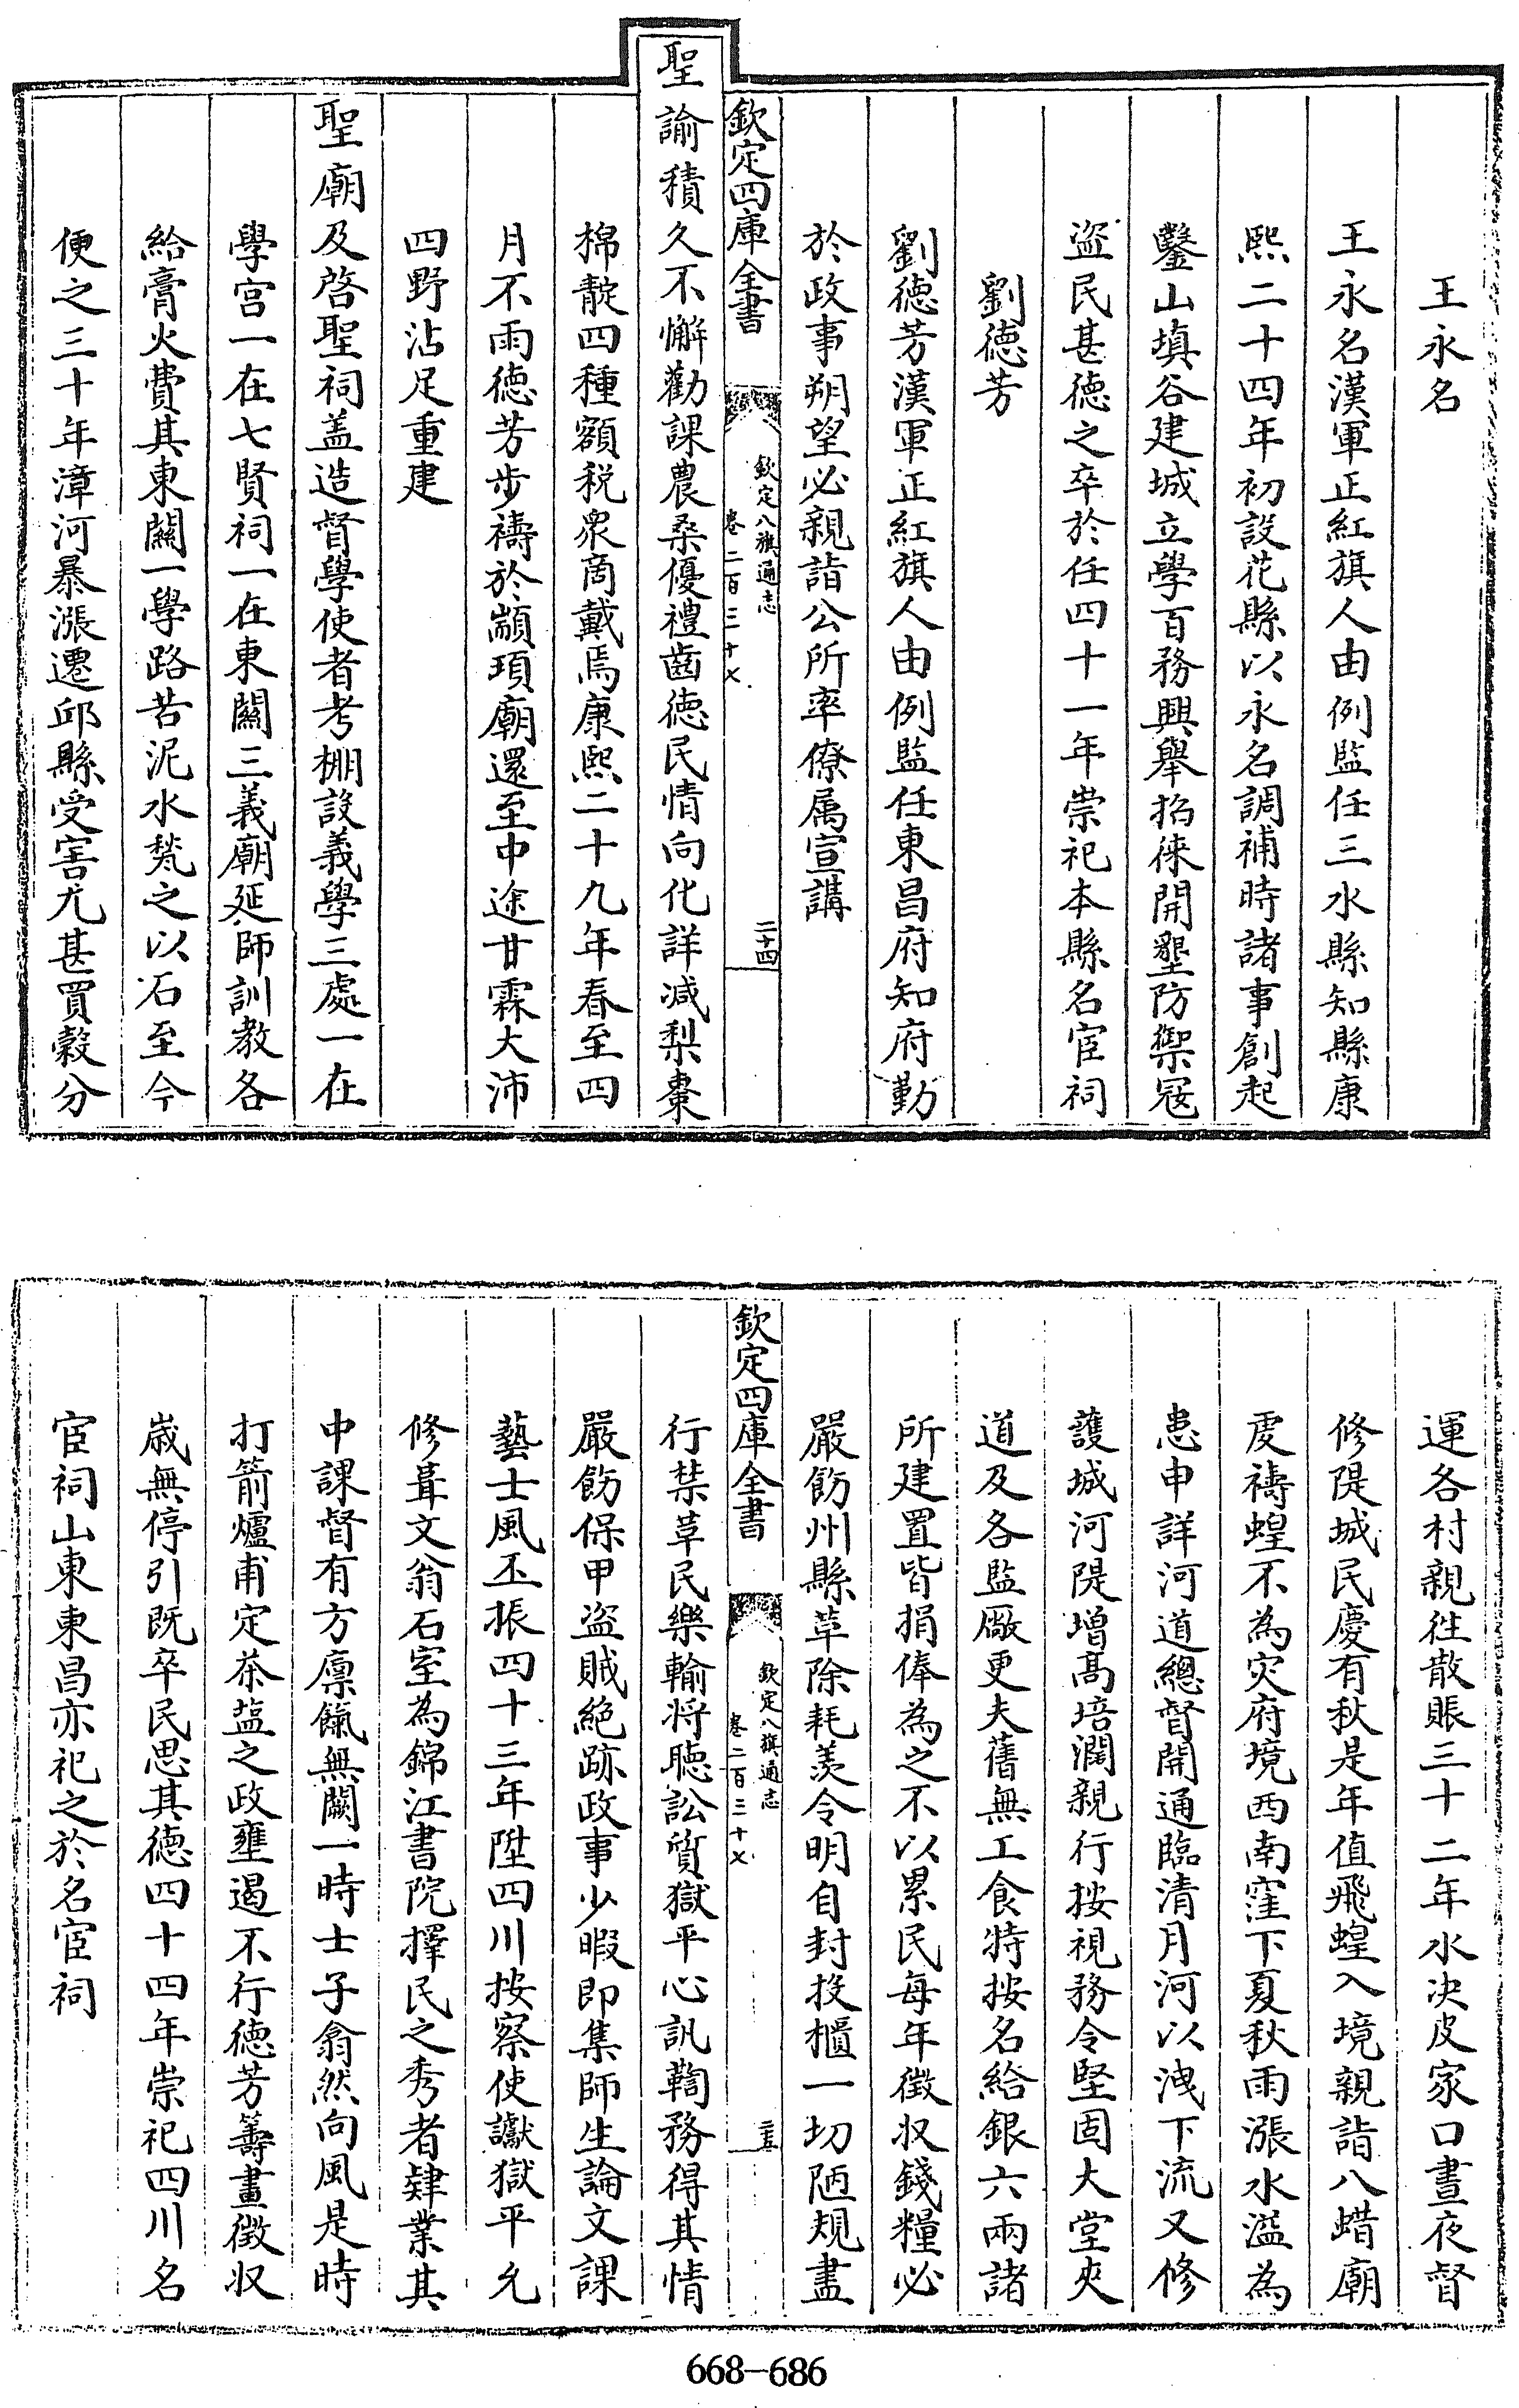 王永名
王永名漢軍正紅旗人由例監任三水縣知縣康
熙二十四年初設花縣以永名調補時諸事創起
鑿山填谷建城立學百務興舉招徠開墾防禦冦
盗民甚徳之卒於任四十一年崇祀本縣名宦祠
劉徳芳
劉徳芳漢軍正紅旗人由例監任東昌府知府勤
於政事朔望必親詣公所率僚属宣講
欽定四庫全書
欽定八旗通志
卷二百三十七
二十四
聖諭積久不懈勸課農桑優禮齒徳民情向化詳減梨棗
棉靛四種額税衆商戴焉康熙二十九年春至四
月不雨徳芳步禱於顓頊廟還至中途甘霖大沛
四野沾足重建
聖廟及啓聖祠盖造督學使者考棚設義學三處一在
學宮一在七賢祠一在東關三義廟延師訓教各
給膏火費其東關一學路苦泥水甃之以石至今
便之三十年漳河暴漲遷邱縣受害尤甚買穀分
運各村親往散賬三十二年水决皮家口晝夜督
修隄城民慶有秋是年值飛蝗入境親詣八蜡廟
虔禱蝗不為灾府境西南窪下夏秋雨漲水溢為
患申詳河道總督開通臨清月河以洩下流又修
護城河隄增髙培濶親行按視務令堅固大堂夾
道及各監廠更夫舊無工食特按名給銀六兩諸
所建置皆捐俸為之不以累民每年徵収錢糧必
嚴飭州縣革除耗羨令明自封投櫃一切陋規盡
欽定四庫全書
欽定八旗通志
卷二百三十七
二十五
行禁革民樂輸将聴訟質獄平心訊鞫務得其情
嚴飭保甲盗賊絶跡政事少暇即集師生論文課
藝士風丕振四十三年陞四川按察使讞獄平允
修葺文翁石室為錦江書院擇民之秀者肄業其
中課督有方廪餼無闕一時士子翕然向風是時
打箭爐甫定茶盐之政壅遏不行徳芳籌畫徵収
歳無停引既卒民思其徳四十四年崇祀四川名
宦祠山東東昌亦祀之於名宦祠
668-686